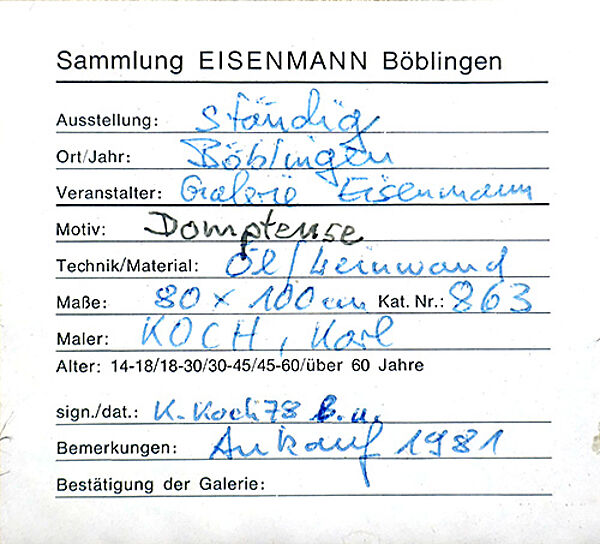 Sammlung EISENMANN Böblingen
Ausstellung: Ständig
Ort/Jahr: Böblingen
Veranstalter: Galerie Eisenmann
Motiv: Dompteuse
Technik/Material: Öl/Leinwand
Maße: 80 x 100 cm Kat. Nr.: 863
Maler: KOCH, Karl
Alter: 14-18/18-30/30-45/45-60/über 60 Jahre
sign./dat.: K. Koch 78 l. u.
Bemerkungen: Ankauf 1981
Bestätigung der Galerie: